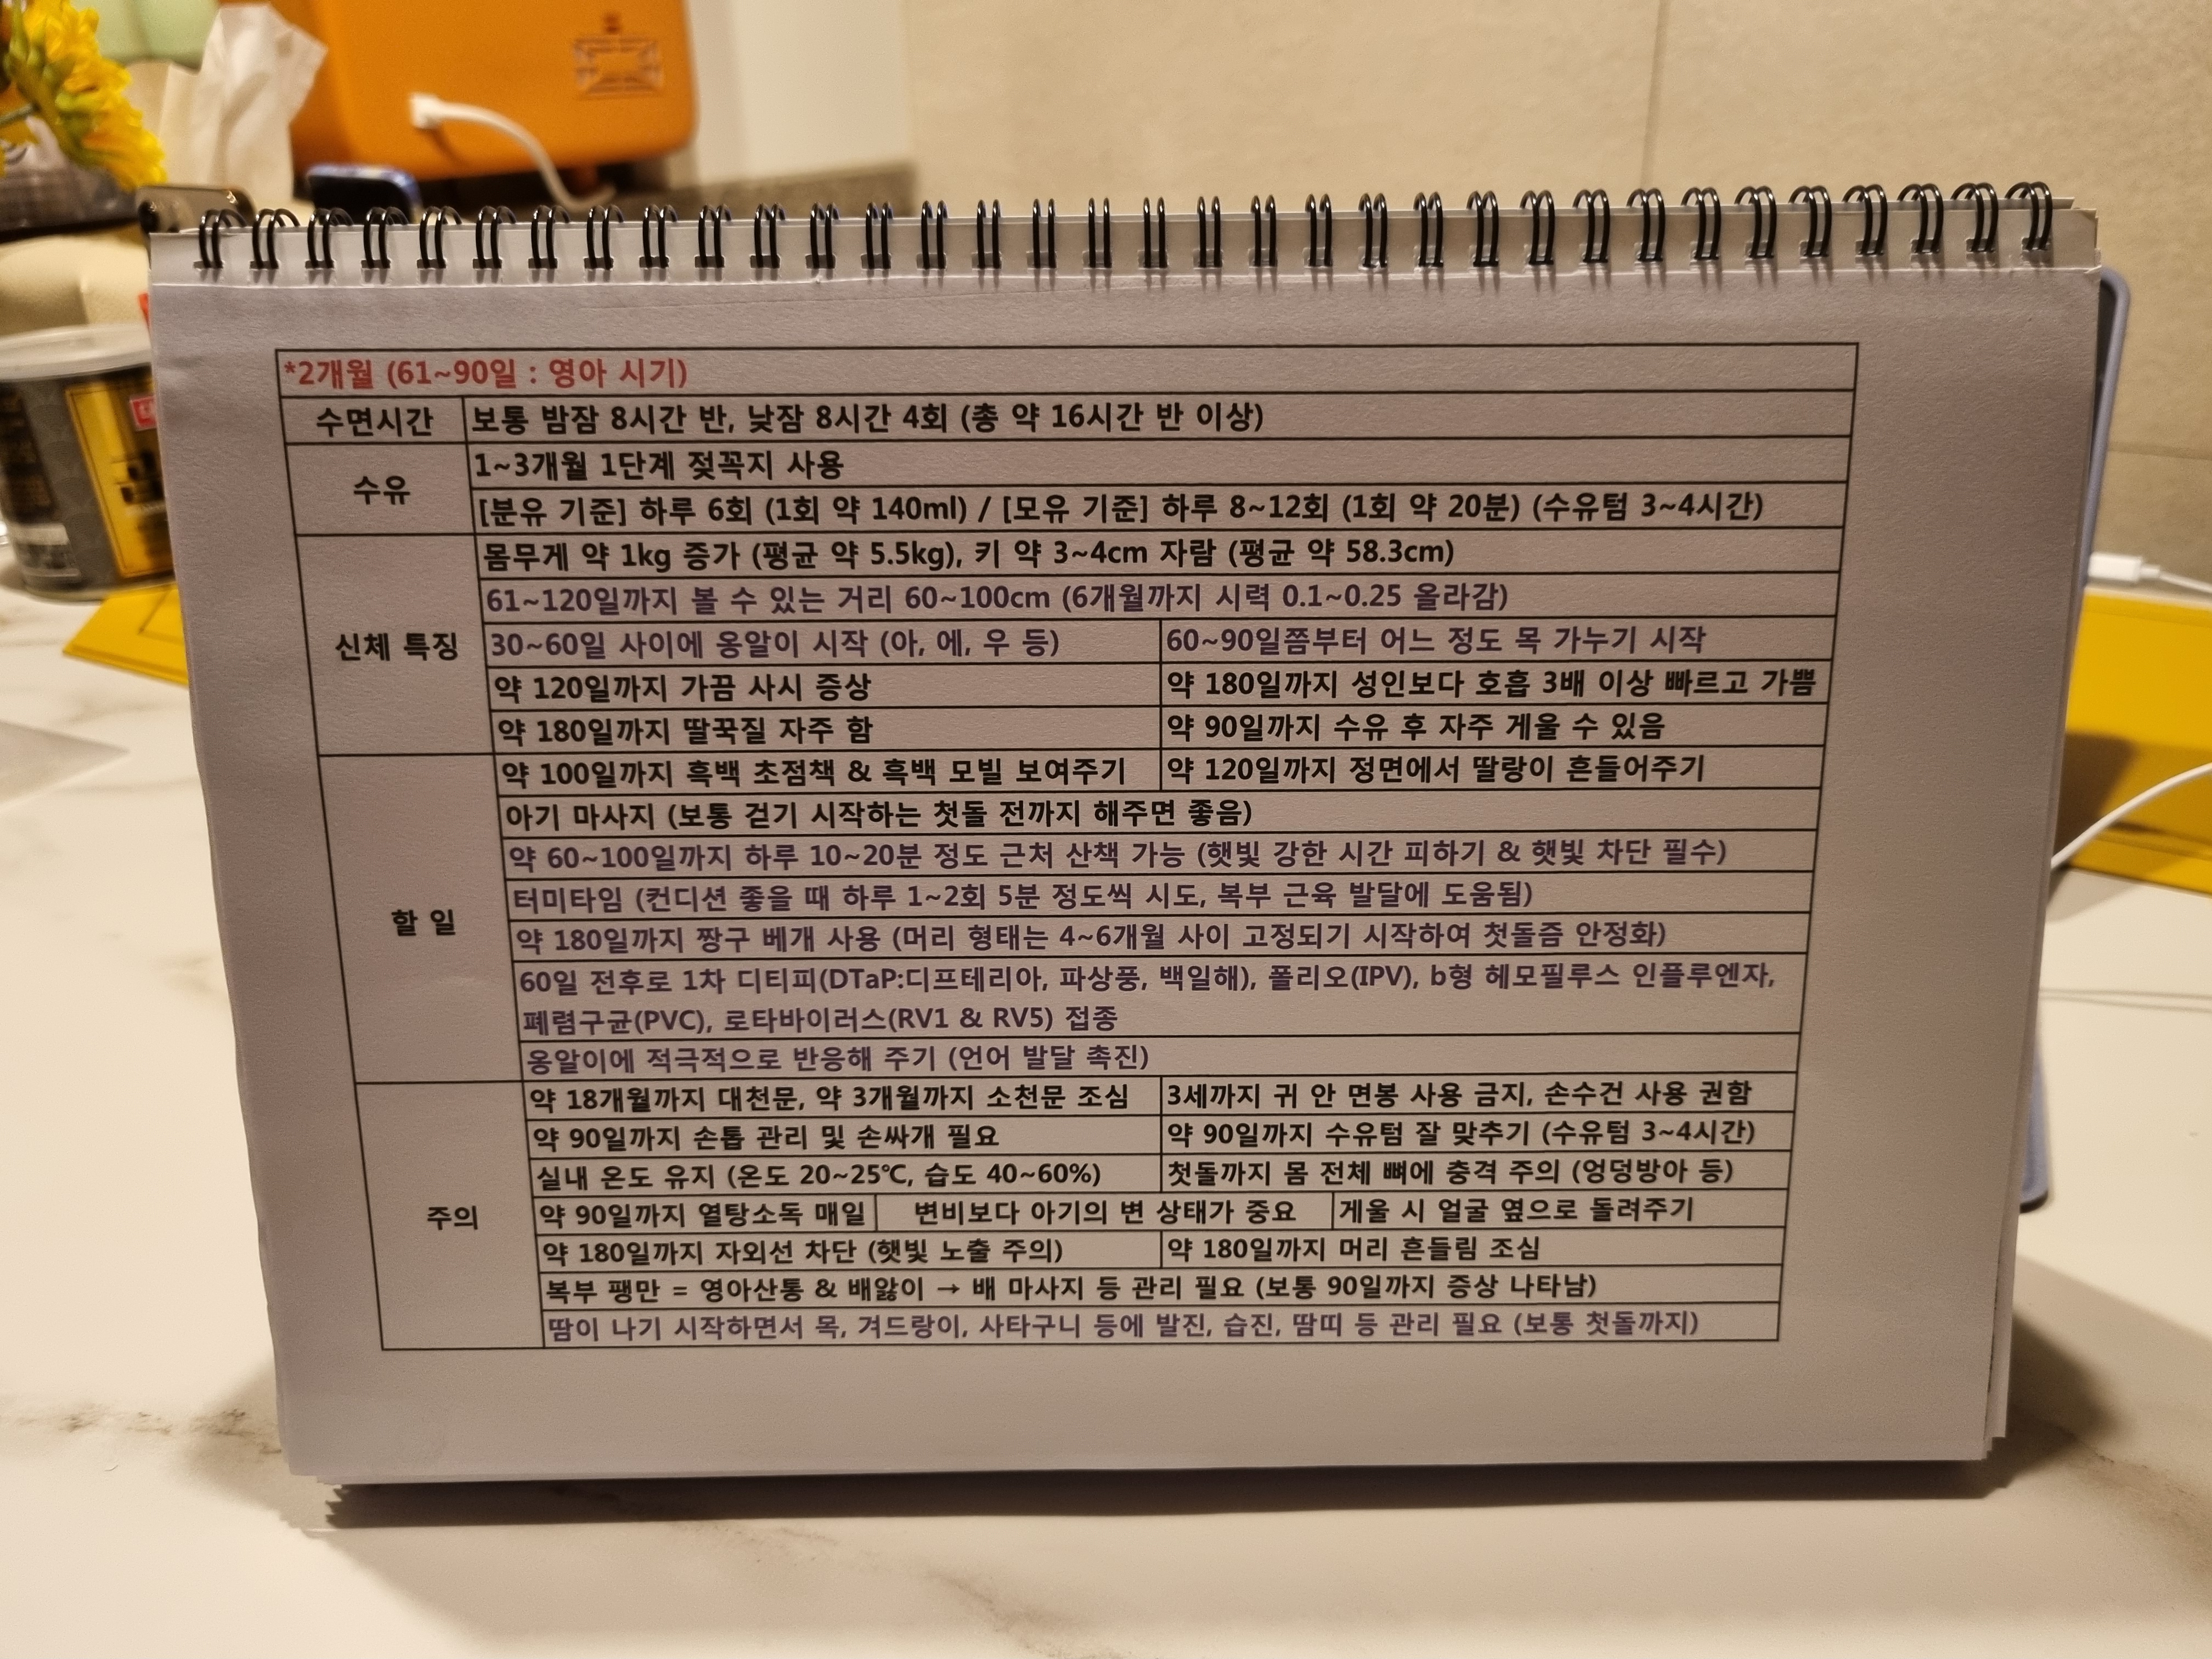 *2개월 (61~90일 : 영아 시기)
수면시간
보통 밤잠 8시간 반, 낮잠 8시간 4회 (총 약 16시간 반 이상)
수유
1~3개월 1단계 젖꼭지 사용
[분유 기준] 하루 6회 (1회 약 140ml) / [모유 기준] 하루 8~12회 (1회 약 20분) (수유텀 3~4시간)
신체 특징
몸무게 약 1kg 증가 (평균 약 5.5kg), 키 약 3~4cm 자람 (평균 약 58.3cm)
61~120일까지 볼 수 있는 거리 60~100cm (6개월까지 시력 0.1~0.25 올라감)
30~60일 사이에 옹알이 시작 (아, 에, 우 등)
60~90일쯤부터 어느 정도 목 가누기 시작
약 120일까지 가끔 사시 증상
약 180일까지 성인보다 호흡 3배 이상 빠르고 가쁨
약 180일까지 딸꾹질 자주 함
약 90일까지 수유 후 자주 게울 수 있음
할 일
약 100일까지 흑백 초점책 & 흑백 모빌 보여주기
약 120일까지 정면에서 딸랑이 흔들어주기
아기 마사지 (보통 걷기 시작하는 첫돌 전까지 해주면 좋음)
약 60~100일까지 하루 10~20분 정도 근처 산책 가능 (햇빛 강한 시간 피하기 & 햇빛 차단 필수)
터미타임 (컨디션 좋을 때 하루 1~2회 5분 정도씩 시도, 복부 근육 발달에 도움됨)
약 180일까지 짱구 베개 사용 (머리 형태는 4~6개월 사이 고정되기 시작하여 첫돌즘 안정화)
60일 전후로 1차 디티피(DTaP:디프테리아, 파상풍, 백일해), 폴리오(IPV), b형 헤모필루스 인플루엔자,
폐렴구균(PVC), 로타바이러스(RV1 & RV5) 접종
옹알이에 적극적으로 반응해 주기 (언어 발달 촉진)
주의
약 18개월까지 대천문, 약 3개월까지 소천문 조심
3세까지 귀 안 면봉 사용 금지, 손수건 사용 권함
약 90일까지 손톱 관리 및 손싸개 필요
약 90일까지 수유텀 잘 맞추기 (수유텀 3~4시간)
실내 온도 유지 (온도 20~25℃, 습도 40~60%)
첫돌까지 몸 전체 뼈에 충격 주의 (엉덩방아 등)
약 90일까지 열탕소독 매일
변비보다 아기의 변 상태가 중요
게울 시 얼굴 옆으로 돌려주기
약 180일까지 자외선 차단 (햇빛 노출 주의)
약 180일까지 머리 흔들림 조심
복부 팽만 = 영아산통 & 배앓이 → 배 마사지 등 관리 필요 (보통 90일까지 증상 나타남)
땀이 나기 시작하면서 목, 겨드랑이, 사타구니 등에 발진, 습진, 땀띠 등 관리 필요 (보통 첫돌까지)